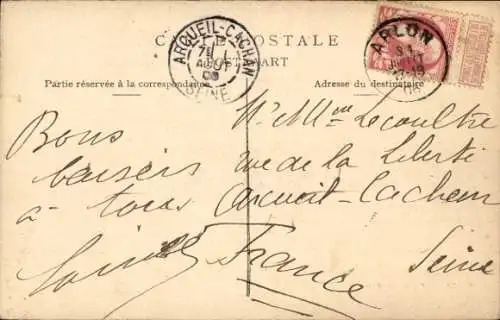 CARTE POSTALE
POSTKAART
Partie réservée à la correspondance
Adresse du destinataire
ARQUEIL-CACHAN
SEINE
ARLON
Bons
baisers
à tous
Mme Lecoultre
rue de la Liberté
Arcueil-Cachan
Seine
France